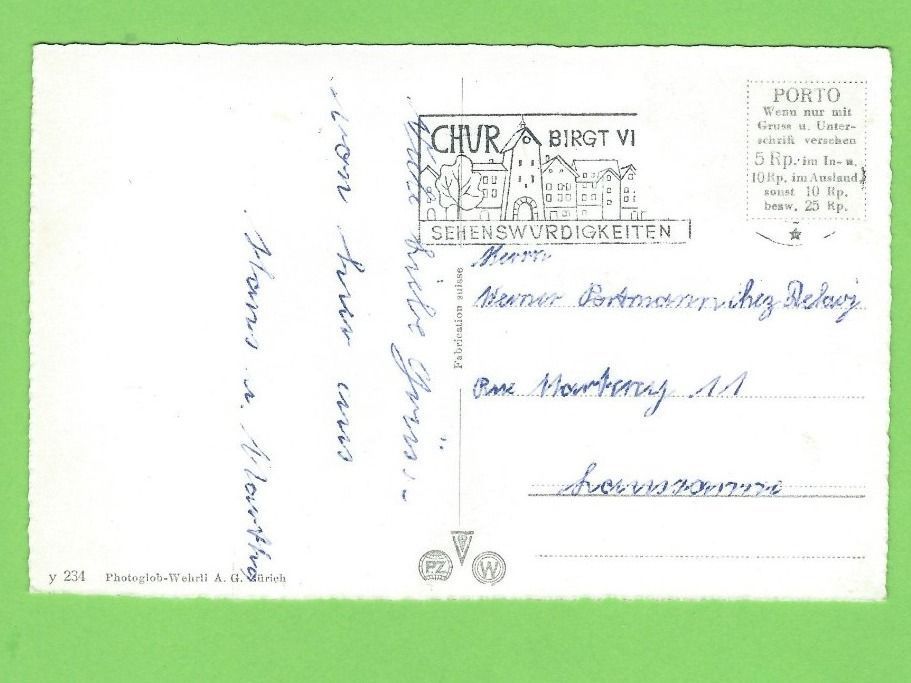 Viele liebe Grüsse
von hier aus
Hans u. Martha
CHUR BIRGT VI
SEHENSWÜRDIGKEITEN
PORTO
Wenn nur mit
Gruss u. Unter-
schrift versehen
5 Rp. im In- u.
10 Rp. im Ausland
sonst 10 Rp.
bezw. 25 Rp.
Herrn
Werner Portmann chez Delavy
Rue Marterey 11
Lausanne
Fabrication suisse
PZ W
y 234 Photoglob-Wehrli A. G. Zürich